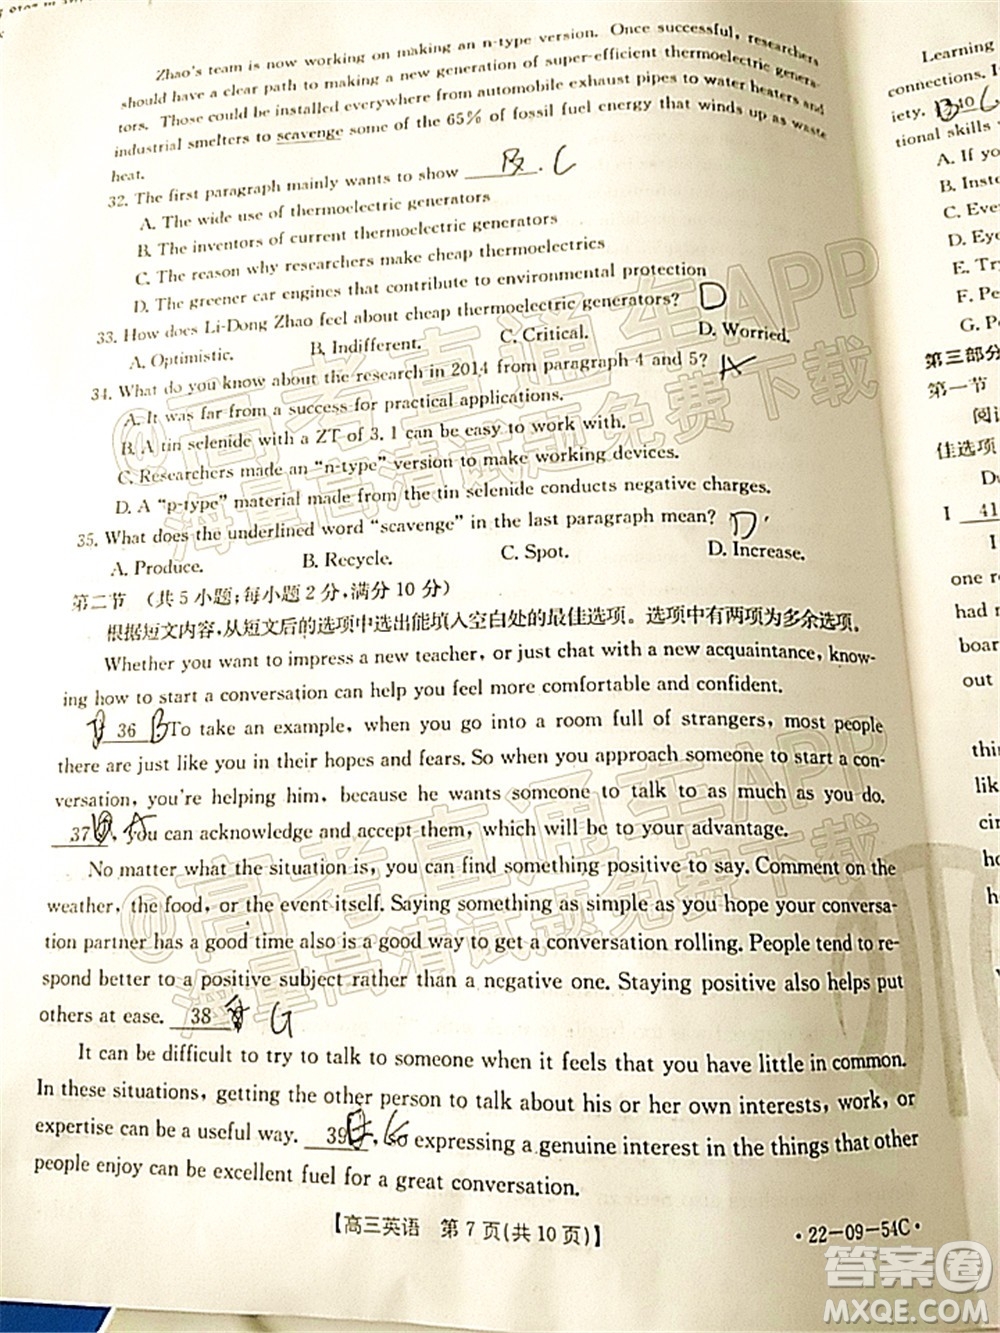 Zhao's team is now working on making an n-type version. Once successful, researchers
should have a clear path to making a new generation of super-efficient thermoelectric genera-
tors. Those could be installed everywhere from automobile exhaust pipes to water heaters and
industrial smelters to scavenge some of the 65% of fossil fuel energy that winds up as waste
heat.
32. The first paragraph mainly wants to show ______. C
A. The wide use of thermoelectric generators
B. The inventors of current thermoelectric generators
C. The reason why researchers make cheap thermoelectrics
D. The greener car engines that contribute to environmental protection
33. How does Li-Dong Zhao feel about cheap thermoelectric generators? D
A. Optimistic. B. Indifferent. C. Critical. D. Worried.
34. What do you know about the research in 2014 from paragraph 4 and 5? A
A. It was far from a success for practical applications.
B. A tin selenide with a ZT of 3.1 can be easy to work with.
C. Researchers made an "n-type" version to make working devices.
D. A "p-type" material made from the tin selenide conducts negative charges.
35. What does the underlined word "scavenge" in the last paragraph mean? D
A. Produce. B. Recycle. C. Spot. D. Increase.
第二节 (共5小题;每小题2分,满分10分)
根据短文内容,从短文后的选项中选出能填入空白处的最佳选项。选项中有两项为多余选项。
Whether you want to impress a new teacher, or just chat with a new acquaintance, know-
ing how to start a conversation can help you feel more comfortable and confident.
36 B To take an example, when you go into a room full of strangers, most people
there are just like you in their hopes and fears. So when you approach someone to start a con-
versation, you're helping him, because he wants someone to talk to as much as you do.
37 A, you can acknowledge and accept them, which will be to your advantage.
No matter what the situation is, you can find something positive to say. Comment on the
weather, the food, or the event itself. Saying something as simple as you hope your conversa-
tion partner has a good time also is a good way to get a conversation rolling. People tend to re-
spond better to a positive subject rather than a negative one. Staying positive also helps put
others at ease. 38 G
It can be difficult to try to talk to someone when it feels that you have little in common.
In these situations, getting the other person to talk about his or her own interests, work, or
expertise can be a useful way. 39, So expressing a genuine interest in the things that other
people enjoy can be excellent fuel for a great conversation.
【高三英语 第7页(共10页)】
·22-09-54C·
Learning
connections. I
iety. 40 C
tional skills
A. If you
B. Inste
C. Eve
D. Eye
E. Try
F. Pe
G. P
第三部分
第一节
阅
佳选项
Du
I 41
I
one r
had
boar
out
thin
lik
cir
h
h
@高考直通车APP
海量高清试题免费下载
@高考直通车APP
海量高清试题免费下载
答案圈
MXQE.COM